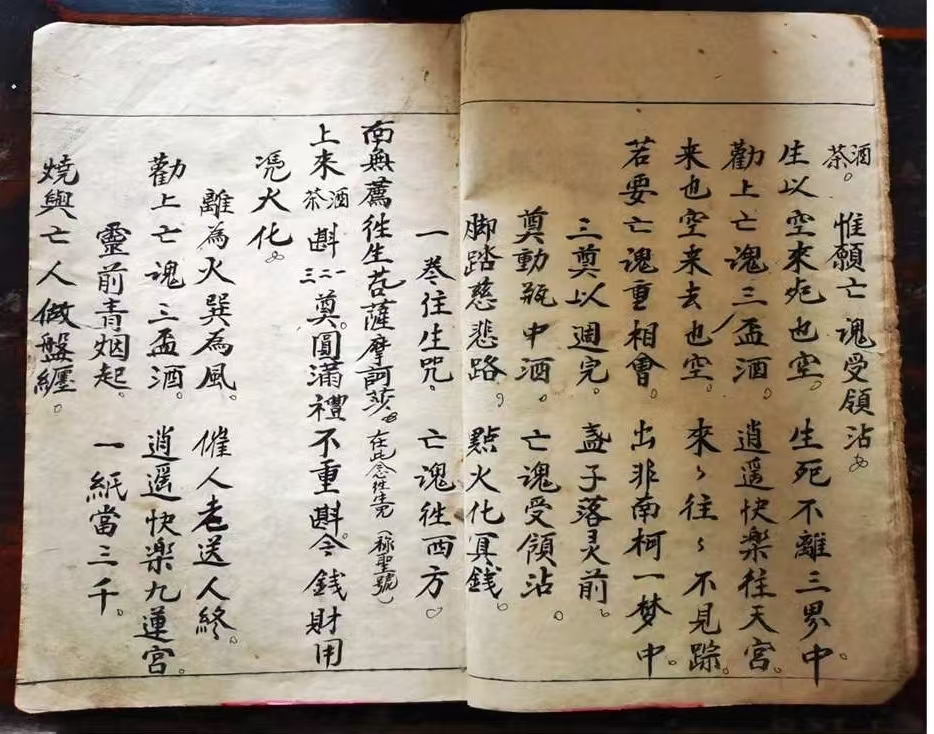 酒茶。惟願亡魂受領沾。
生以空來死也空。生死不離三界中。
勸上亡魂三盃酒。逍遥快楽往天宮。
来也空来去也空。來〻往〻不見踪。
若要亡魂重相會。出非南柯一梦中。
三奠以週完。盞子落灵前。
奠動瓶中酒。亡魂受領沾。
脚踏慈悲路。點火化冥錢。
一卷往生咒。亡魂徃西方。
南無薦徃生菩薩摩訶莎。在此念徃生完（稌聖號）
上來酒茶斟一二三奠。圓滿禮不重斟。今錢財用
凴火化。
離為火巽為風。催人老送人終。
勸上亡魂三盃酒。逍遥快楽九蓮宮。
靈前青烟起。一紙當三千。
燒與亡人做盤纏。